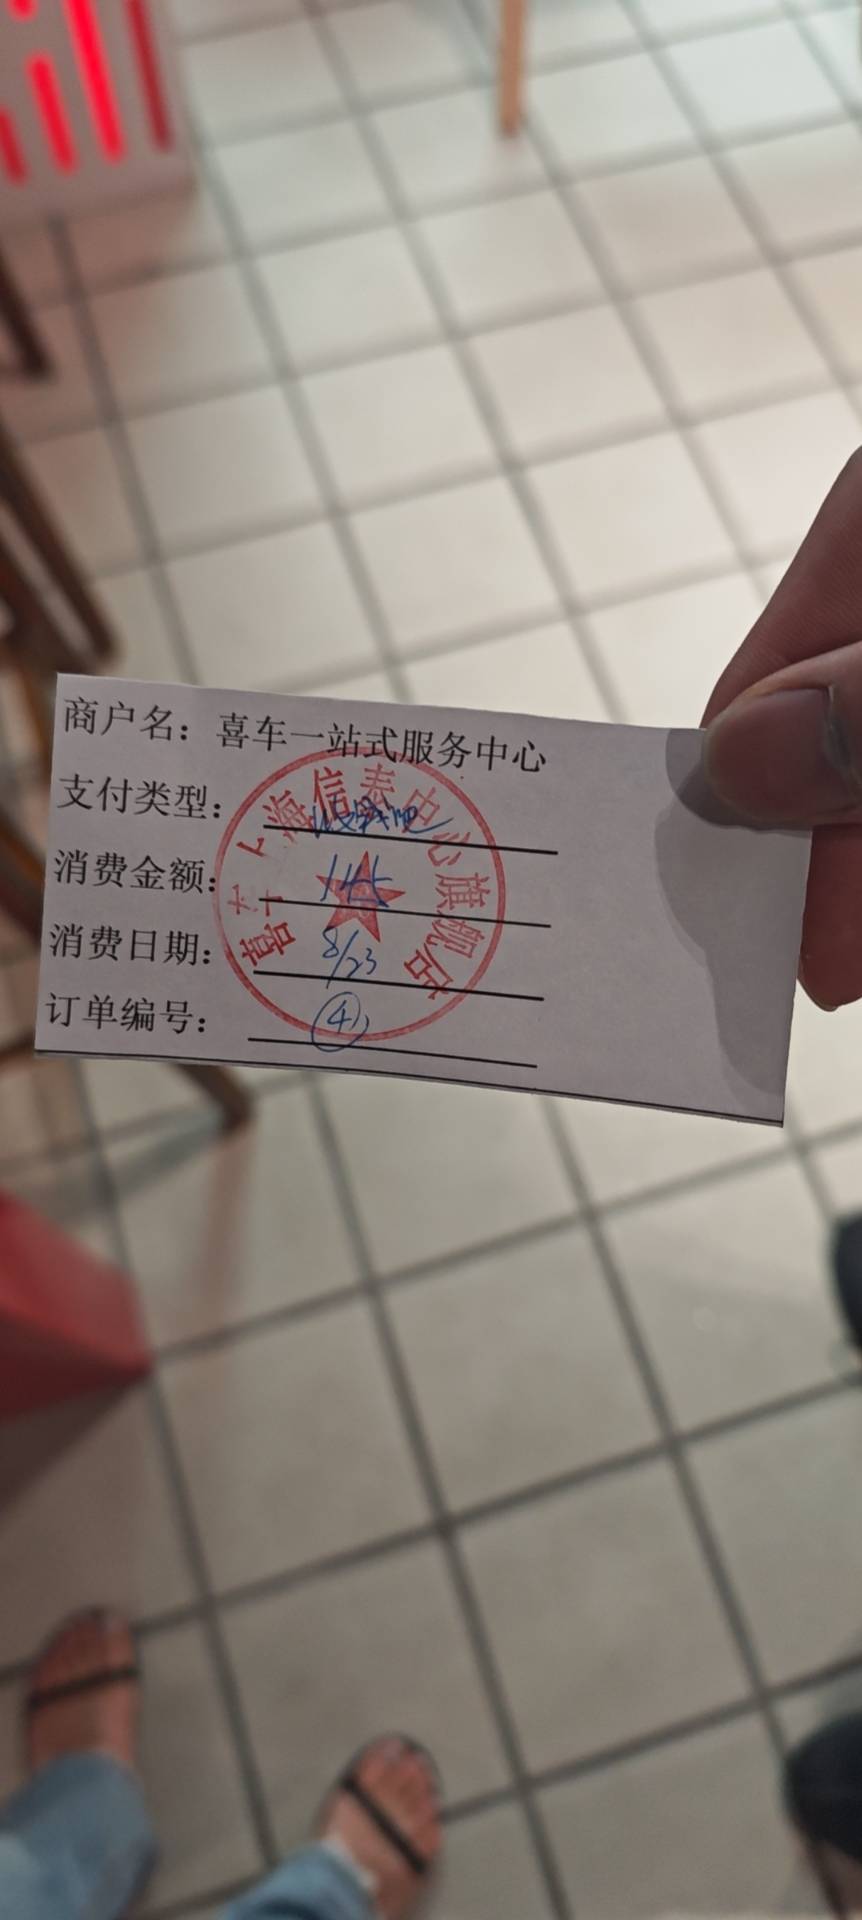 商户名：喜车一站式服务中心
支付类型：
消费金额：145
消费日期：8/23
订单编号：④
喜车上海信泰中心旗舰店